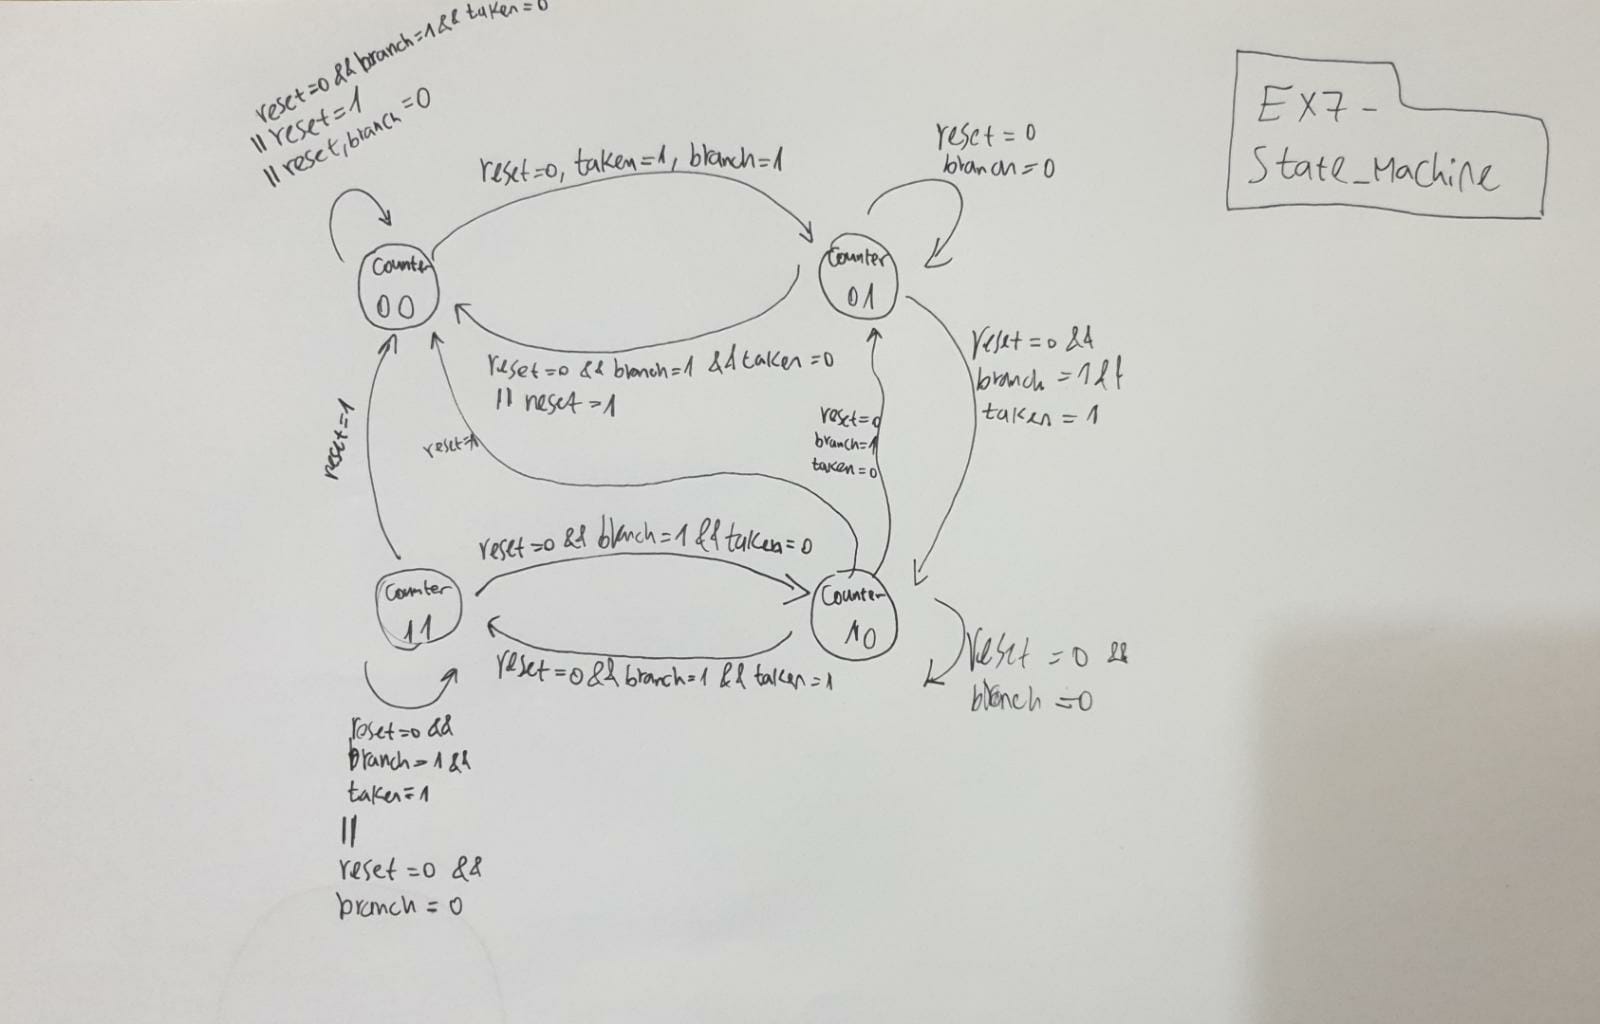 reset=0 && branch=1 && taken=0
|| reset=1
|| reset, branch=0
reset=0, taken=1, branch=1
reset=0
branch=0
EX7-
State_Machine
Counter
00
Counter
01
reset=0 && branch=1 && taken=0
|| reset=1
reset=0 &&
branch=1 &&
taken=1
reset=1
reset=1
reset=0
branch=1
taken=0
reset=0 && branch=1 && taken=0
Counter
11
Counter
10
reset=0 && branch=1 && taken=1
reset=0 &&
branch=0
reset=0 &&
branch=1 &&
taken=1
||
reset=0 &&
branch=0